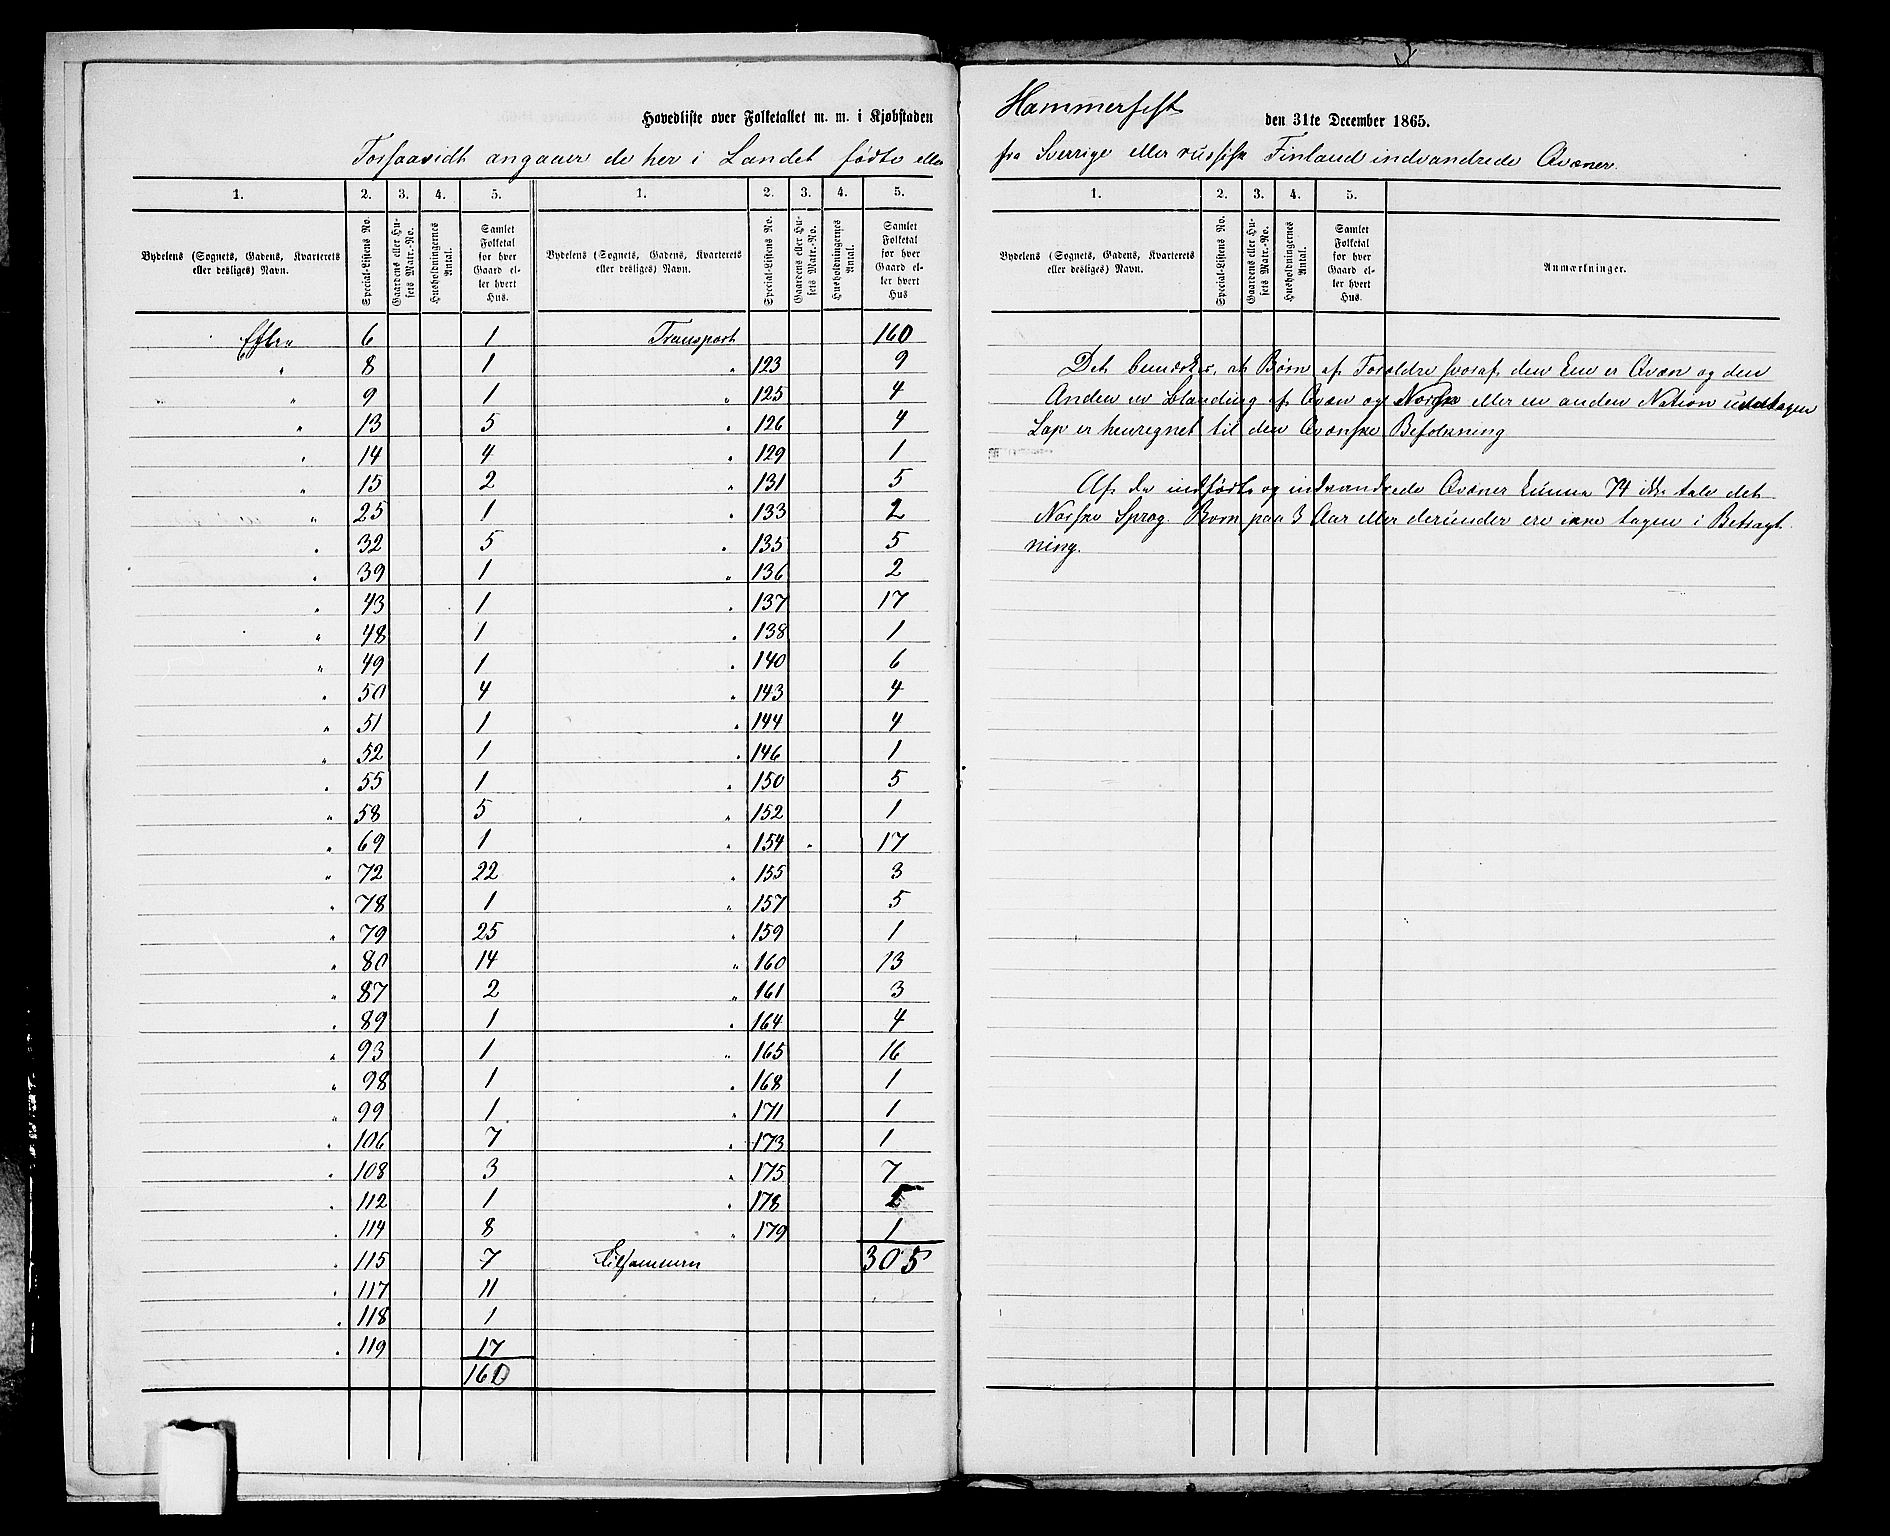 Hovedliste over Folketallet m. m. i Kjøbstaden Hammerfest den 31te December 1865.
Forsaavidt angaaer de her i Landet fødte eller fra Sverrige eller russisk Finland indvandrede Qvæner.
1. 2. 3. 4. 5. 1. 2. 3. 4. 5.
Bydelens (Sognets, Gadens, Kvarterets eller desliges) Navn. Special-Listens No. Gaardens eller Husets Matr.-No. Husholdningernes Antal. Samlet Folketal for hver Gaard eller hvert Hus. Bydelens (Sognets, Gadens, Kvarterets eller desliges) Navn. Special-Listens No. Gaardens eller Husets Matr.-No. Husholdningernes Antal. Samlet Folketal for hver Gaard eller hvert Hus
Efter 6 1 Transport 160
" 8 1 " 123 9
" 9 1 " 125 4
" 13 5 " 126 4
" 14 4 " 129 1
" 15 2 " 131 5
" 25 1 " 133 2
" 32 5 " 135 5
" 39 1 " 136 2
" 43 1 " 137 17
" 48 1 " 138 1
" 49 1 " 140 6
" 50 4 " 143 4
" 51 1 " 144 4
" 52 1 " 146 1
" 55 1 " 150 5
" 58 5 " 152 1
" 69 1 " 154 17
" 72 22 " 155 3
" 78 1 " 157 5
" 79 25 " 159 1
" 80 14 " 160 13
" 87 2 " 161 3
" 89 1 " 164 4
" 93 1 " 165 16
" 98 1 " 168 1
" 99 1 " 171 1
" 106 7 " 173 1
" 108 3 " 175 7
" 112 1 " 178
" 114 8 " 179 1
" 115 7 Tilsammen 305
" 117 11
" 118 1
" 119 17
160
1. 2. 3. 4. 5.
Bydelens (Sognets, Gadens, Kvarterets eller desliges) Navn. Special-Listens No. Gaardens eller Husets Matr.-No. Husholdningernes Antal. Samlet Folketal for hver Gaard eller hvert Hus Anmærkninger.
Det bemærkes, at Børn af Forældre hvoraf den Ene er Qvæn og den
Anden en Blanding af Qvæn og Norsk eller en anden Nation undtagen
Lap er henregnet til den Qvænske Befolkning
Af de indfødte og indvandrede Qvæner kunne 74 ikke tale det
Norske Sprog. Børn paa 3 Aar eller derunder ere ikke tagen i Betragt
ning.